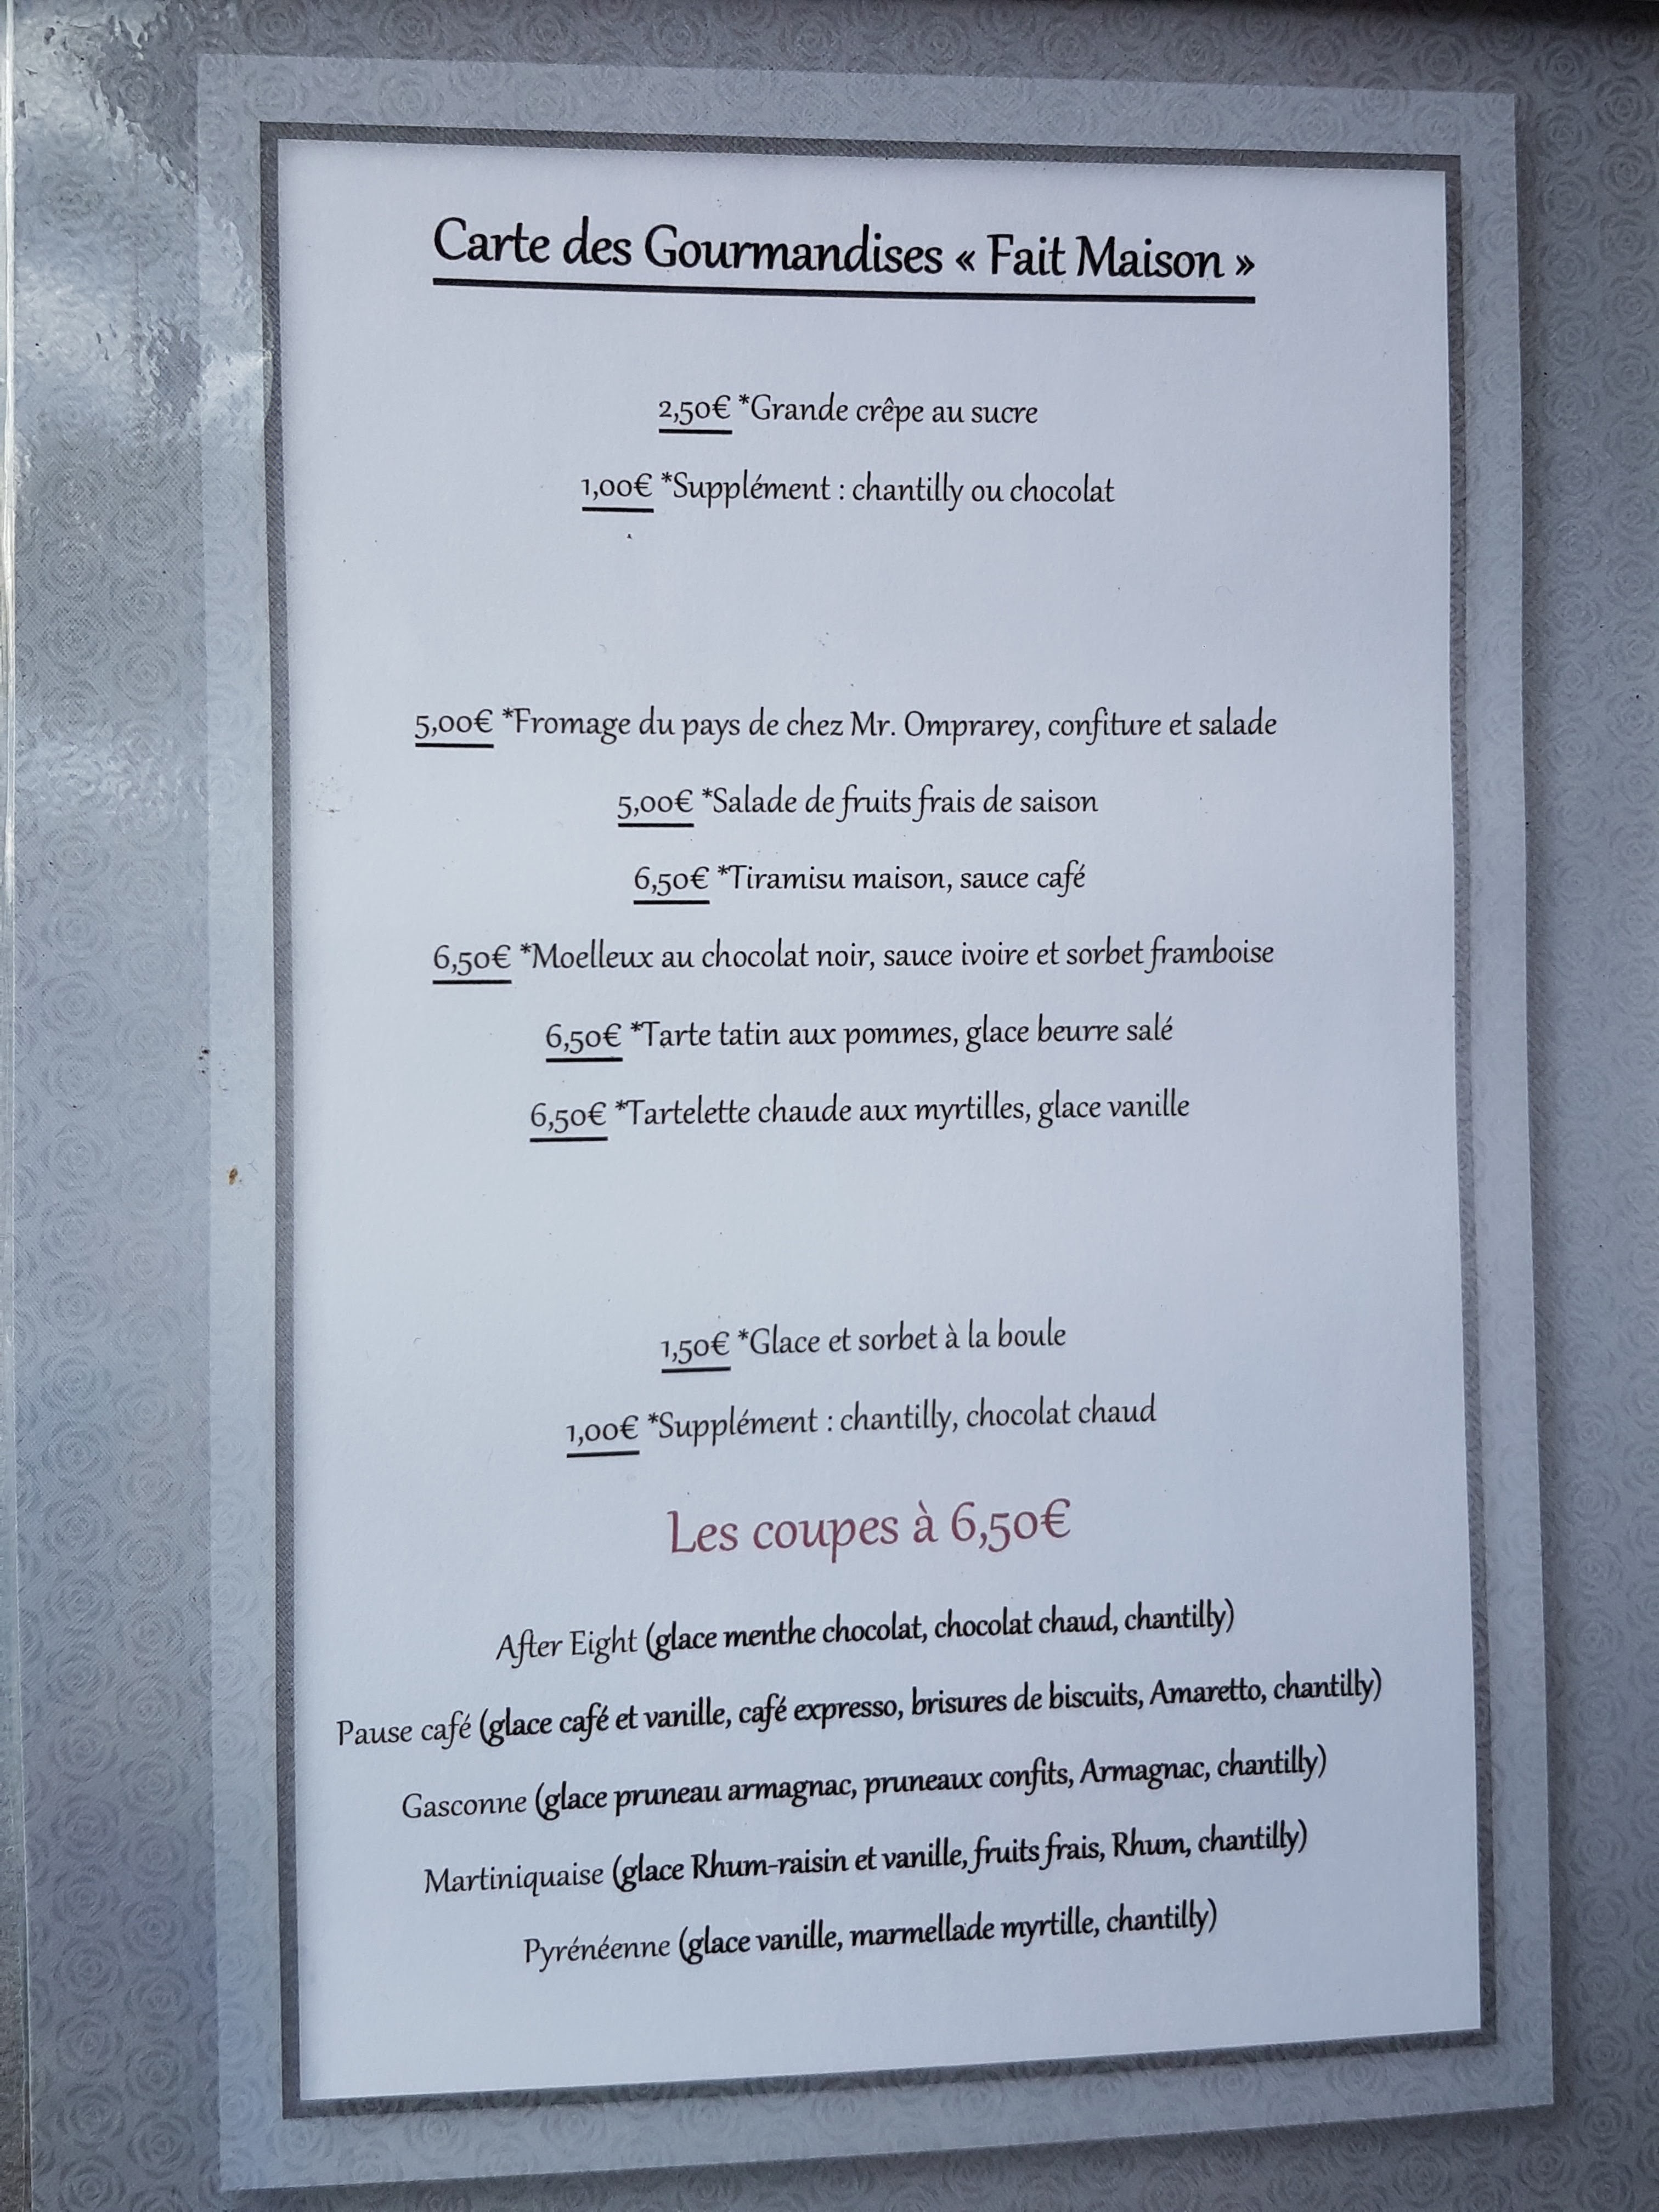 Carte des Gourmandises « Fait Maison »
2,50€ *Grande crêpe au sucre
1,00€ *Supplément : chantilly ou chocolat
5,00€ *Fromage du pays de chez Mr. Omprarey, confiture et salade
5,00€ *Salade de fruits frais de saison
6,50€ *Tiramisu maison, sauce café
6,50€ *Moelleux au chocolat noir, sauce ivoire et sorbet framboise
6,50€ *Tarte tatin aux pommes, glace beurre salé
6,50€ *Tartelette chaude aux myrtilles, glace vanille
1,50€ *Glace et sorbet à la boule
1,00€ *Supplément : chantilly, chocolat chaud
Les coupes à 6,50€
After Eight (glace menthe chocolat, chocolat chaud, chantilly)
Pause café (glace café et vanille, café expresso, brisures de biscuits, Amaretto, chantilly)
Gasconne (glace pruneau armagnac, pruneaux confits, Armagnac, chantilly)
Martiniquaise (glace Rhum-raisin et vanille, fruits frais, Rhum, chantilly)
Pyrénéenne (glace vanille, marmellade myrtille, chantilly)